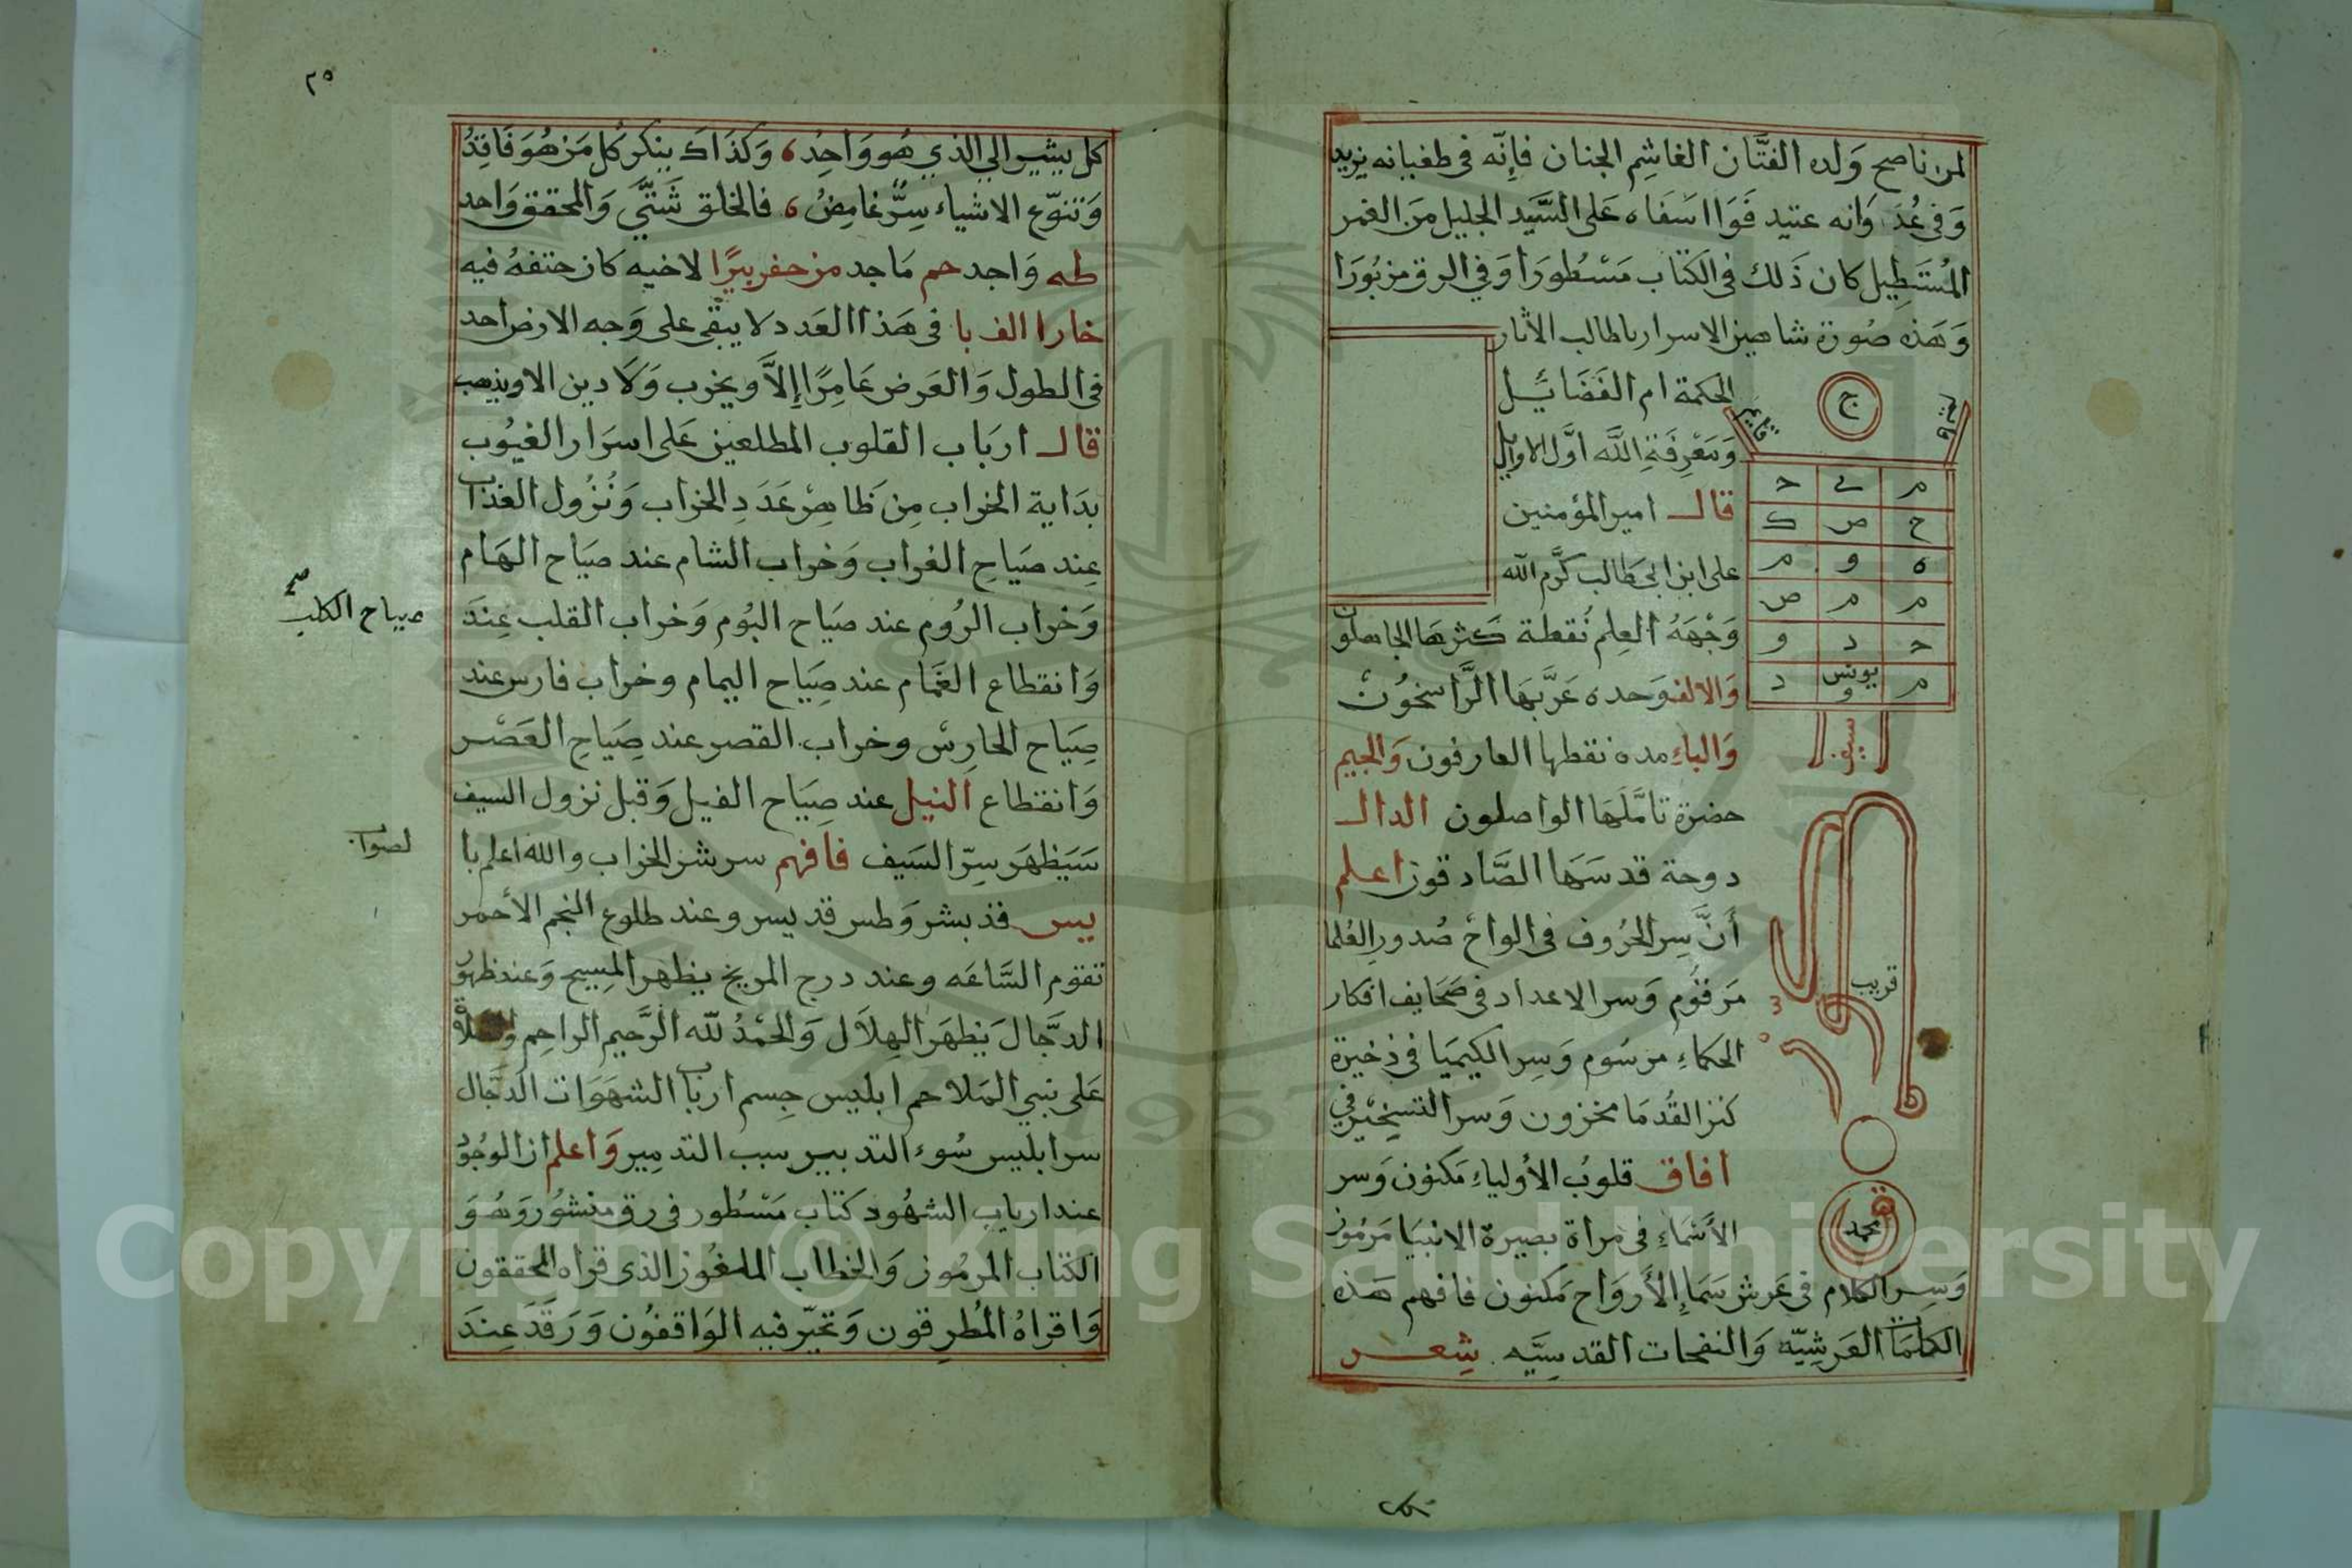 لمن ناصح وَلده الفتَّان الغاشم الجنان فإنّه في طغيانه يزيد
وَفي عُدَ وَانه عتيد فَوَا اسَفَاه عَلى السَّيد الجليل مِنَ الغمر
المُستَطيل كان ذَلك في الكتاب مَسْطُورَا وَفي الرق مزبُورَا
وَهَذه صُورة شاهين الاسرار ياطالب الأثار
الحكمة ام الفَضَائيل
وَمَعْرِفَة اللَّه اوَّل الاوايل
قال امير المؤمنين
على ابن ابى طَالب كرَّم الله
وَجْهَهُ العِلم نُقطة كثرهَا الجاهلون
وَالالف وَحده عَرَّبَهَا الرَّاسخُونْ
وَالباء مده نقطها العارفون وَالجيم
حضرة تامَّلَهَا الواصلون الدال
دوحة قدسَهَا الصَّادقون اعلم
أنَّ سِر الحُرُوف في الواحْ صُدورِ العُلما
مَرقوُم وَسر الاعداد في صَحَايف افكار
الحكماء مرسُوم وَسِر الكيميَا في ذخيرة
كنز القُدمَا مخزون وَسر التسخيْر في
افاق قلوبُ الأولياءِ مَكنون وَسر
الأسْمَاءِ في مراة بصيرة الانبيَا مَرموز
وَسِر الكلام في عَرش سَمَاءِ الأَروَاح مَكنون فافهم هَذه
الكلمَات العَرشِيّه وَالنفحات القدسِيَّه شِعر
ج
قايم
م
ح
ح ص ك
ه و م
م م ص
ح د و
م يونس و د
سيف
قريب
محمد
كل
٢٥
كل يشير الي الذي هُو وَاحِدُ، وَكذَاكَ ينكر كُل مَن هُوَ فَاقِدُ
وَتنوّع الاشياء سِرٌّ غامِضُ، فالخلق شَتّىَ وَالمحقق وَاحد
طه وَاجد حم مَاجد من حفر بيرًا لاخيه كان حتفهُ فيه
خارا الف با في هَذا العَدد لا يبْقى على وَجه الارض احد
في الطول وَالعَرض عَامِرًا إِلاَّ ويخرب وَلا دين الا ويذهب
قال اربَاب القلوب المطلعين عَلى اسرَار الغيُوب
بدَاية الخراب مِن ظاهِرْ عَدَدِ الخراب وَنُزُول العذاب
عِند صَيَاحِ الغراب وَخراب الشام عند صيَاح الهَام
وَخراب الرُوم عند صيَاح البُوم وَخراب القلب عِندَ
صياح الكلب صح
وَانقطاع الغَمَام عند صِيَاح اليمام وخراب فارس عند
صِيَاح الحارسْ وخراب القصر عند صِيَاحِ العَصْر
وَانقطاع النيل عند صِيَاح الفيل وَقبل نزول السيف
سَيَظهَر سِرّ السَيف فافهم سر شر الخراب والله اعلم با
لصواب
يس فذ بشر وَطس قد يسر وعند طلوع النجم الأحمر
تقوم السَّاعَه وعند درج المريخ يظهر المِسيح وَعند ظهور
الدَّجال يَظهَر الهِلاَل وَالحَمْدُ للّه الرَّحيم الراحِم وَالصلاة
عَلى نبي المَلاحم ابليس جِسم ارباب الشهَوَات الدَّجَال
سر ابليس سُوء التدبير سبب التدمِير وَاعلم ان الوجُود
عند ارباب الشهُود كتاب مَسْطُور في رق منشُور وَهُوَ
الكتاب المرمُوز وَالخطاب الملغُوز الذى قراه المحققون
وَاقراهُ المُطرِقون وَتحيّر فيه الوَاقفُون وَرَقدَ عِندَ